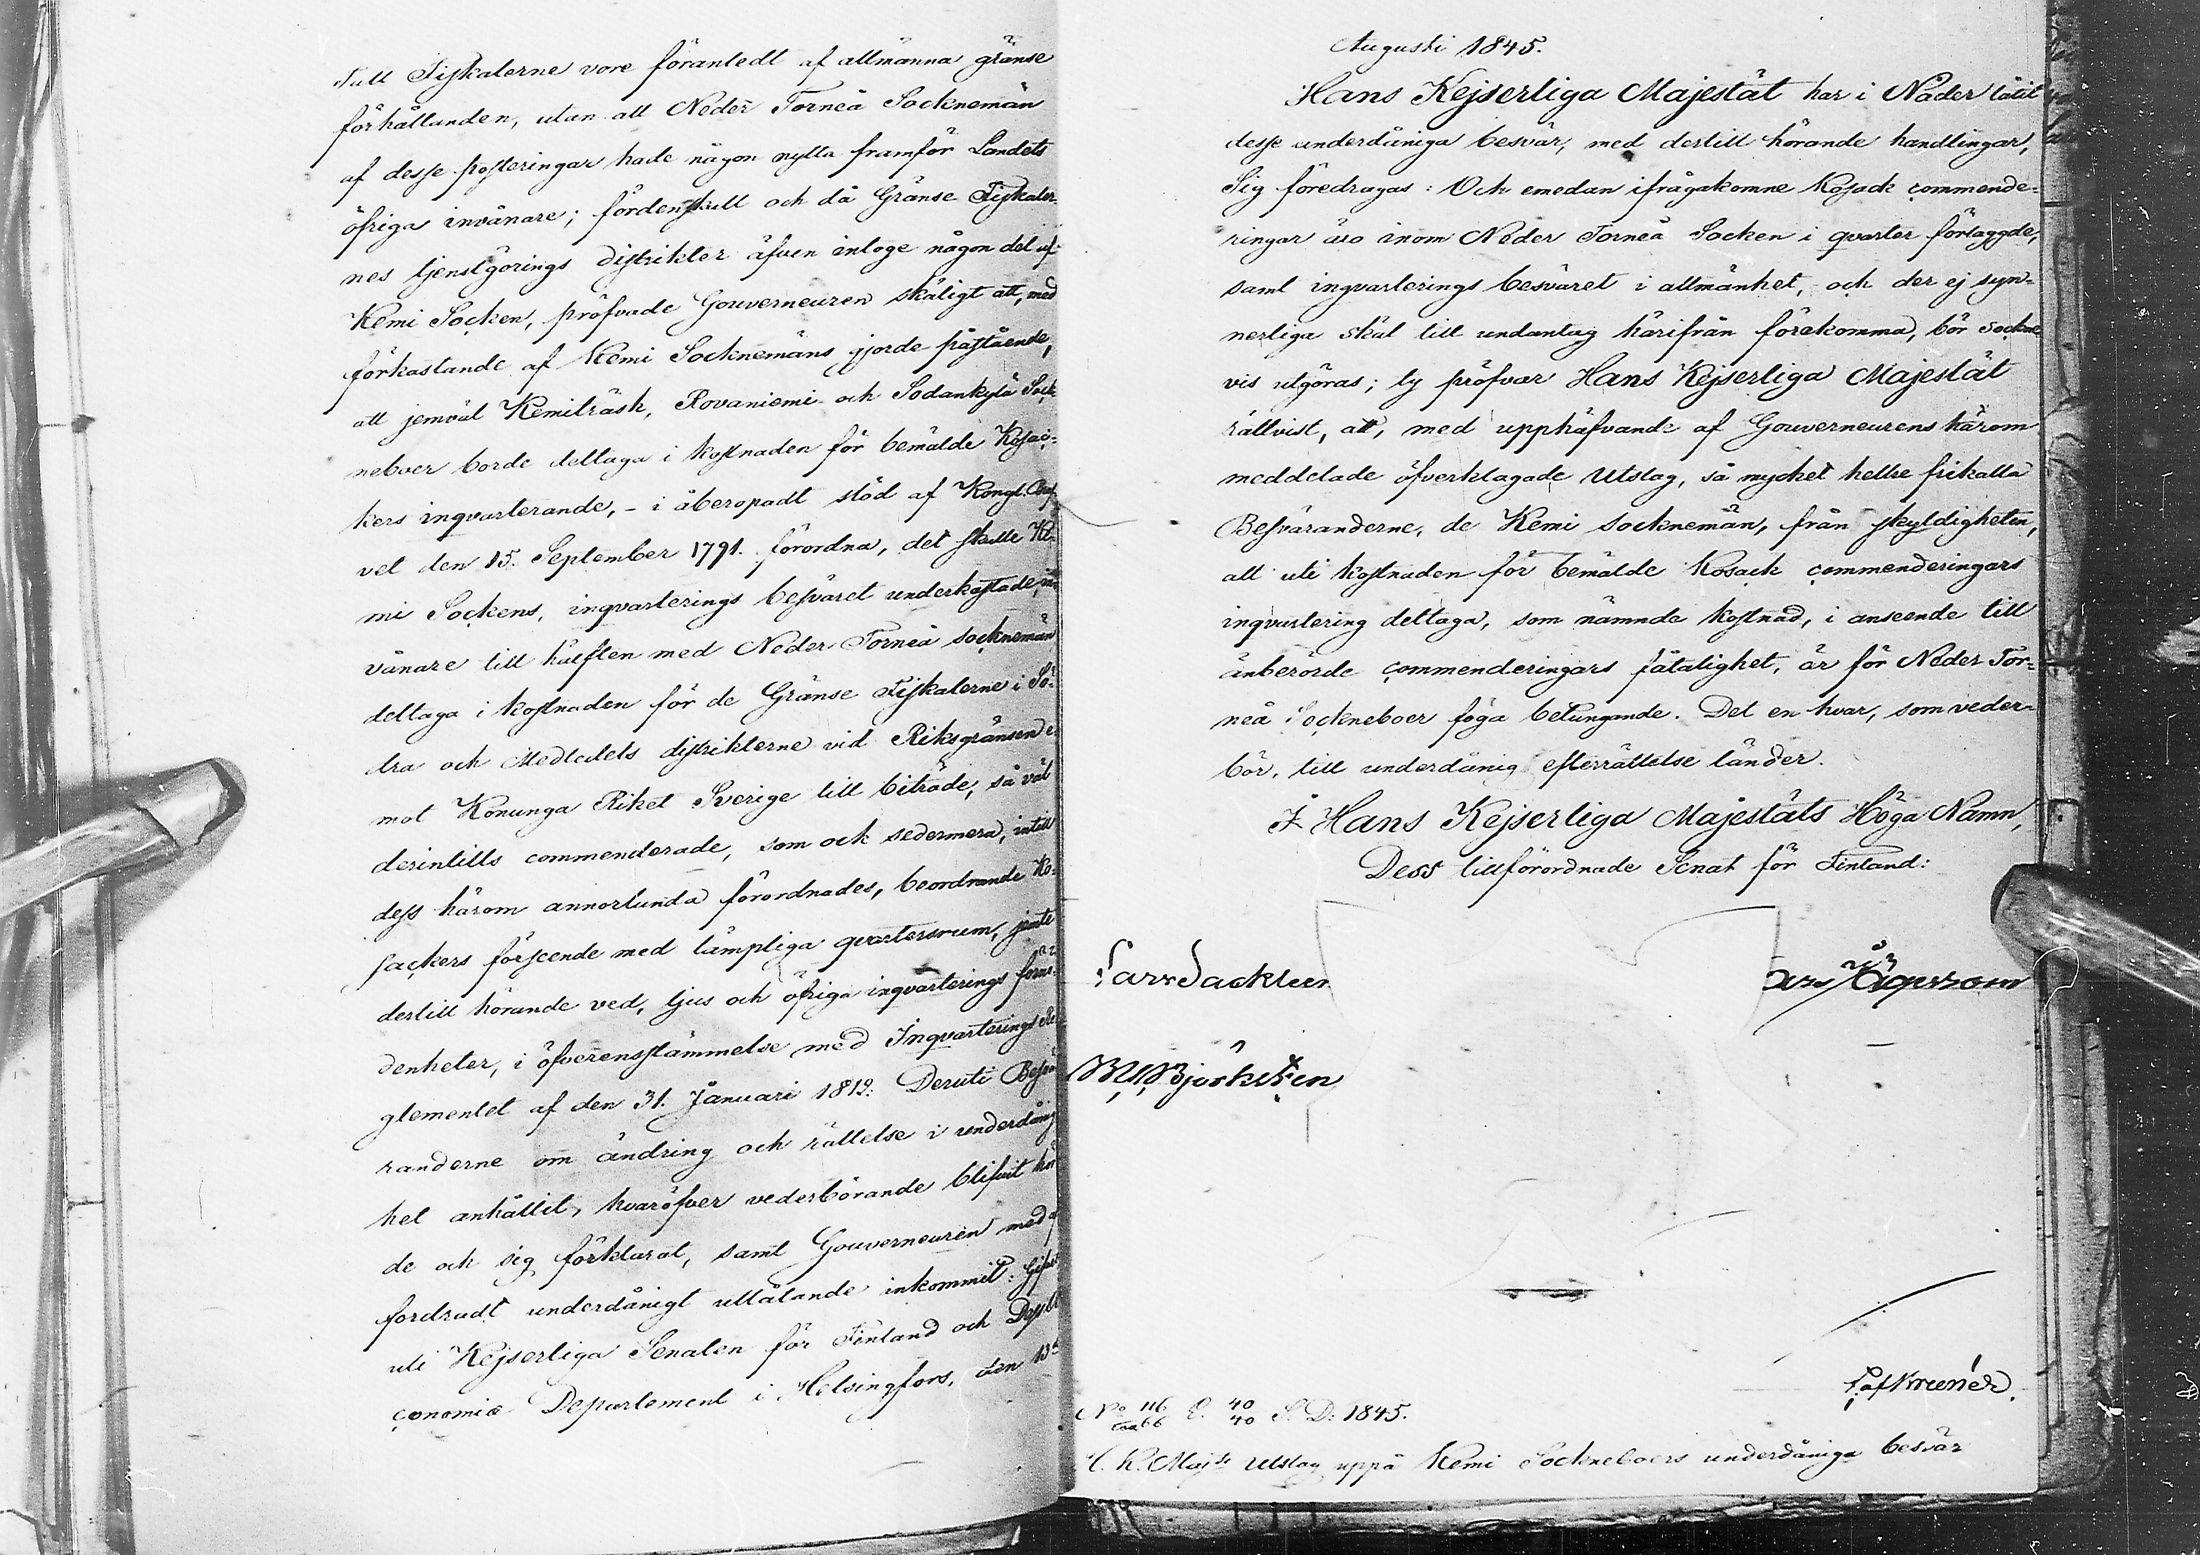 Tull Fiskalerne vore föranledt af allmänna gränse
förhållanden, utan att Neder Torneå Socknemän
af desse posteringar hade någon nytta framför Landets
öfriga invånare; fördenskull och då Gränse Fiskaler-
nes tjenstgörings distrikter äfven intoge någon del af
Kemi Socken, pröfvade Gouverneuren skäligt att, med
förkastande af Kemi Socknemäns gjorde påstående,
att jemväl Kemiträsk, Rovaniemi och Sodankylä Sock-
neboer borde deltaga i kostnaden för bemälde Kosac-
kers inqvarterande, - i åberopadt stöd af Kongl. Bref-
vet den 15. September 1791. förordna, det skulle Ke-
mi Sockens, inqvarterings besväret underkastade, in-
vånare till hälften med Neder Torneå socknemän
deltaga i kostnaden för de Gränse Fiskalerne i Sö-
dra och Medledels distrikterne vid Riksgränsen e-
mot Konunga Riket Sverige till biträde, så väl
derintills commenderade, som ock sedermera, intill
dess härom annorlunda förordnades, beordrande Ko-
sackers förseende med lämpliga qvartersrum, jemte
dertill hörande ved, ljus och öfriga inqvarterings förnö-
denheter, i öfverensstämmelse med Inqvarterings Re-
glementet af den 31. Januari 1812: Deruti Besvä-
randerne om ändring och rättelse i underdånig-
het anhållit, hvaröfver vederbörande blifvit hör-
de och sig förklarat, samt Gouverneuren med af-
fordradt underdånigt utlåtande inkommit: Gifvet
uti Kejserliga Senaten för Finland och Dess
conomie Departement i Helsingfors, den 13
Augusti 1845.
Hans Kejserliga Majestät har i Nåder låtit
desse underdåniga besvär, med dertill hörande handlingar,
Sig föredragas: Och emedan ifrågakomne Kosack commende-
ringar äro inom Neder Torneå Socken i qvarter förlaggde,
samt inqvarterings besväret i allmänhet, och der ej syn-
nerliga skäl till undantag härifrån förekomma, bör sockne
vis utgöras; ty pröfvar Hans Kejserliga Majestät
rättvist, att, med upphäfvande af Gouverneurens härom
meddelade öfverklagade Utslag, så mycket hellre frikalla
Besväranderne, de Kemi socknemän, från skyldigheten,
att uti kostnaden för bemälde Kosack commenderingars
inqvartering deltaga, som nämnde kostnad, i anseende till
änberörde commenderingars fåtalighet, är för Neder Tor-
neå Sockneboer föga betungande. Det en hvar, som veder-
bör, till underdånig efterrättelse länder.
I Hans Kejserliga Majestäts Höga Namn,
Dess tillförordnade Senat för Finland:
Lars Sackleen
Björksten
No 116 66 E. 40 40 S. D: 1845.
H. K. Maj:ts Utslag uppå Kemi Sockneboers underdåniga besvär